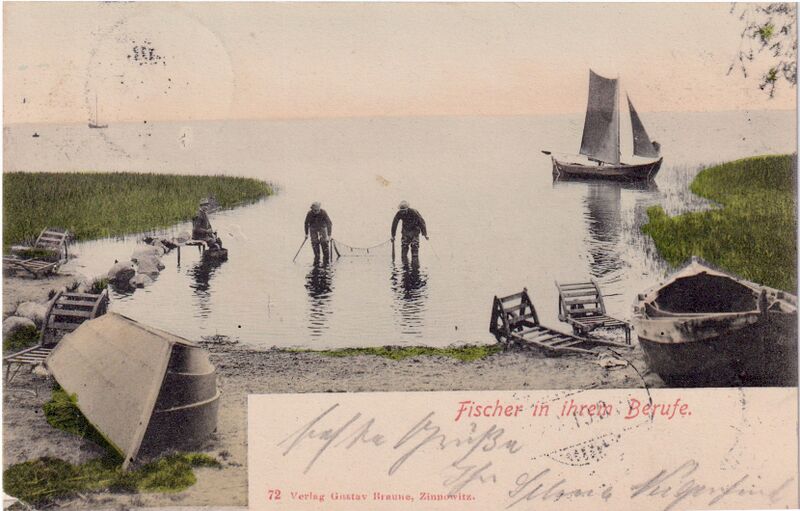 Fischer in ihrem Berufe.
beste Grüße
Ihr
72 Verlag Gustav Braune, Zinnowitz.